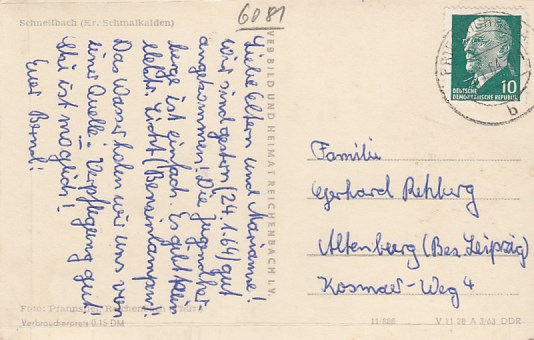 Schnellbach (Kr. Schmalkalden)
6081
Liebe Eltern und Marianne!
wir sind gestern (24.1.64) gut
angekommen! Die Jugendher
berge ist einfach. Es gibt kein
elektr. Licht (Benzinlampen)!
Das Wasser holen wir uns von
eine Quelle! Verpflegung gut.
Ski ist möglich!
Euer Bernd!
VEB BILD UND HEIMAT REICHENBACH I. V.
DEUTSCHE
DEMOKRATISCHE REPUBLIK
10
b
Familie
Gerhard Rehberg
Altenburg (Bez. Leipzig)
Kosmaer-Weg 4
Foto:
Verbraucherpreis 0,15 DM
V 11 28 A 3/63 DDR